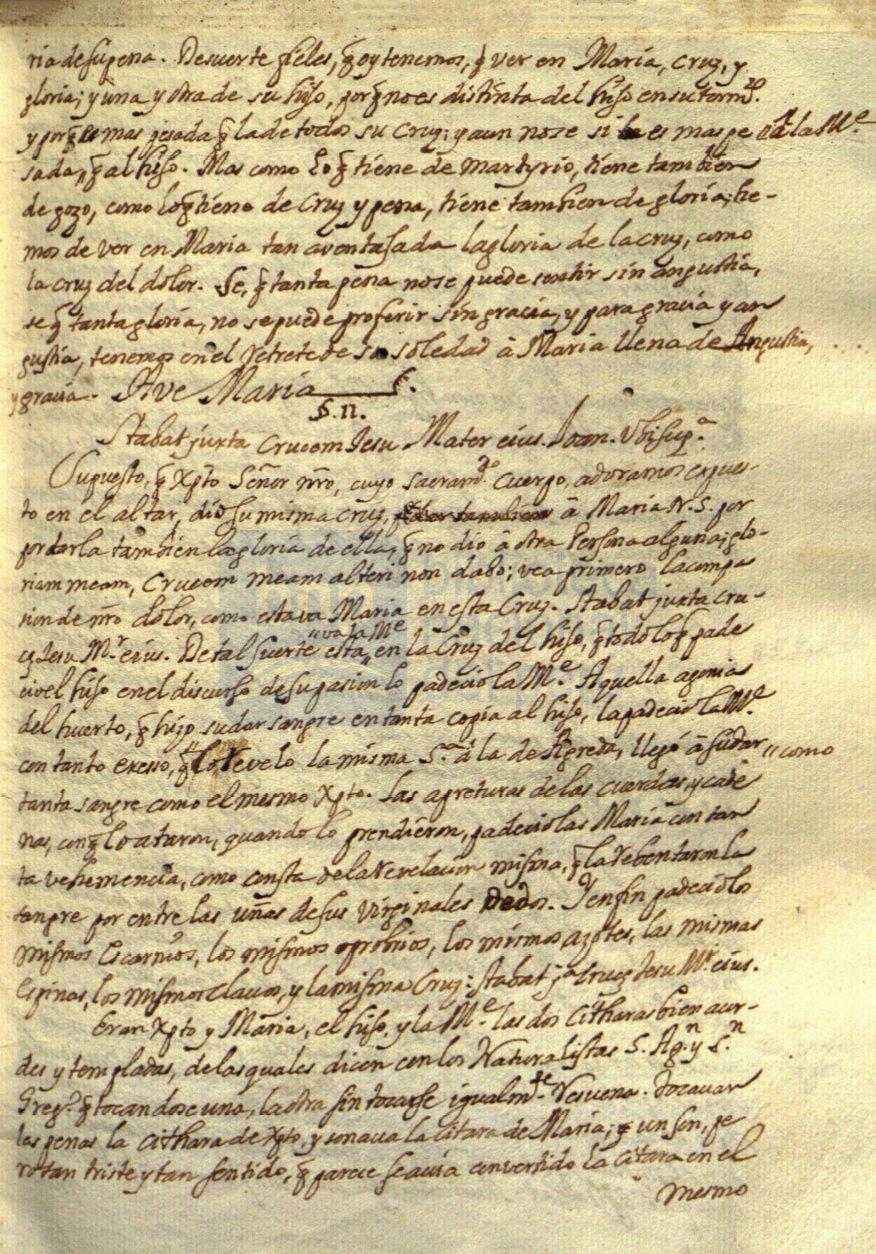 ria de su pena. Desuerte fieles, q̃ oy tenemos, q̃ ver en María, Cruz, y
gloria; y una y otra de su hijo, porq̃ no es distinta del hijo en su torm.to
y porq̃ es mas pesada q̃ la de todos su Cruz; y aun no se si es mas pe a la M.e
sada, q̃ al hijo. Mas como lo q̃ tiene de martyrio, tiene tambien
de gozo, como loq̃ tiene de Cruz y pena, tiene tambien de gloria; he-
mos de ver en Maria tan aventajada la gloria de la cruz, como
la cruz del dolor. Se, q̃ tanta pena no se puede sentir sin angustia,
se q̃ tanta gloria, no se puede proferir sin gracia, y para gracia y an
gustia, tenemos en el retrete de su soledad â Maria llena de Angustia,
y gracia. Ave María
§. II.
Stabat juxta Crucem Jesu Mater eius. Joan. Ubi sup.a
Supuesto, q̃ Xpt̃o Señor nr̃o, cuyo sacram.do Cuerpo, adoramos expues-
to en el altar, dio su misma cruz, â Maria N. S. por
por darla tambien la gloria de ella, q̃ no dio â otra Persona alguna; glo-
riam meam, Crucem meam alteri non dabo; vea primero la compa
sion de nr̃o dolor, como estava Maria en esta Cruz. Stabat juxta cru-
cẽ Jesu M.r eius. De tal suerte esta, "va la M.e en la Cruz del hijo, q̃ todo lo q̃ pade
cio el hijo en el discurso de su pasion lo padecio la M.e Aquella agonia
del huerto, q̃ hizo sudar sangre en tanta copia al hijo, la padecio la M.e
con tanto exesso, q̃ lo revelo la misma S.ra â la de Agreda, llegó â sudar "como
tanta sangre como el mesmo Xpto. Las apreturas de las cuerdas, y cade
nas, conq̃ lo ataron, quando lo prendieron, padeciolas Maria con tan
ta vehemencia, como consta de la revelacion misma, q̃ la rebentaron la
sangre por entre las uñas de sus virginales Dedos. Y enfin padecio los
mismos escarnios, los mismos oprobrios, los mismos azotes, las mismas
Espinas, los mismos Clavos, y la misma Cruz: stabat j.a Cruce Jesu M.r eius.
Eran Xpto y Maria, el hijo, y la M.e las dos Citharas bien acor-
des y templadas, de las quales dicen con los Naturalistas S. Ag.n y S.n
Greg.o q̃ tocandose una, la otra sin tocarse igualm.te resuena. Tocavan
las penas la cithara de Xpto, y sonava la citara de Maria; q̃ un son, pe
ro tan triste y tan sentido, q̃ parece se avia convertido la citara en el
mesmo